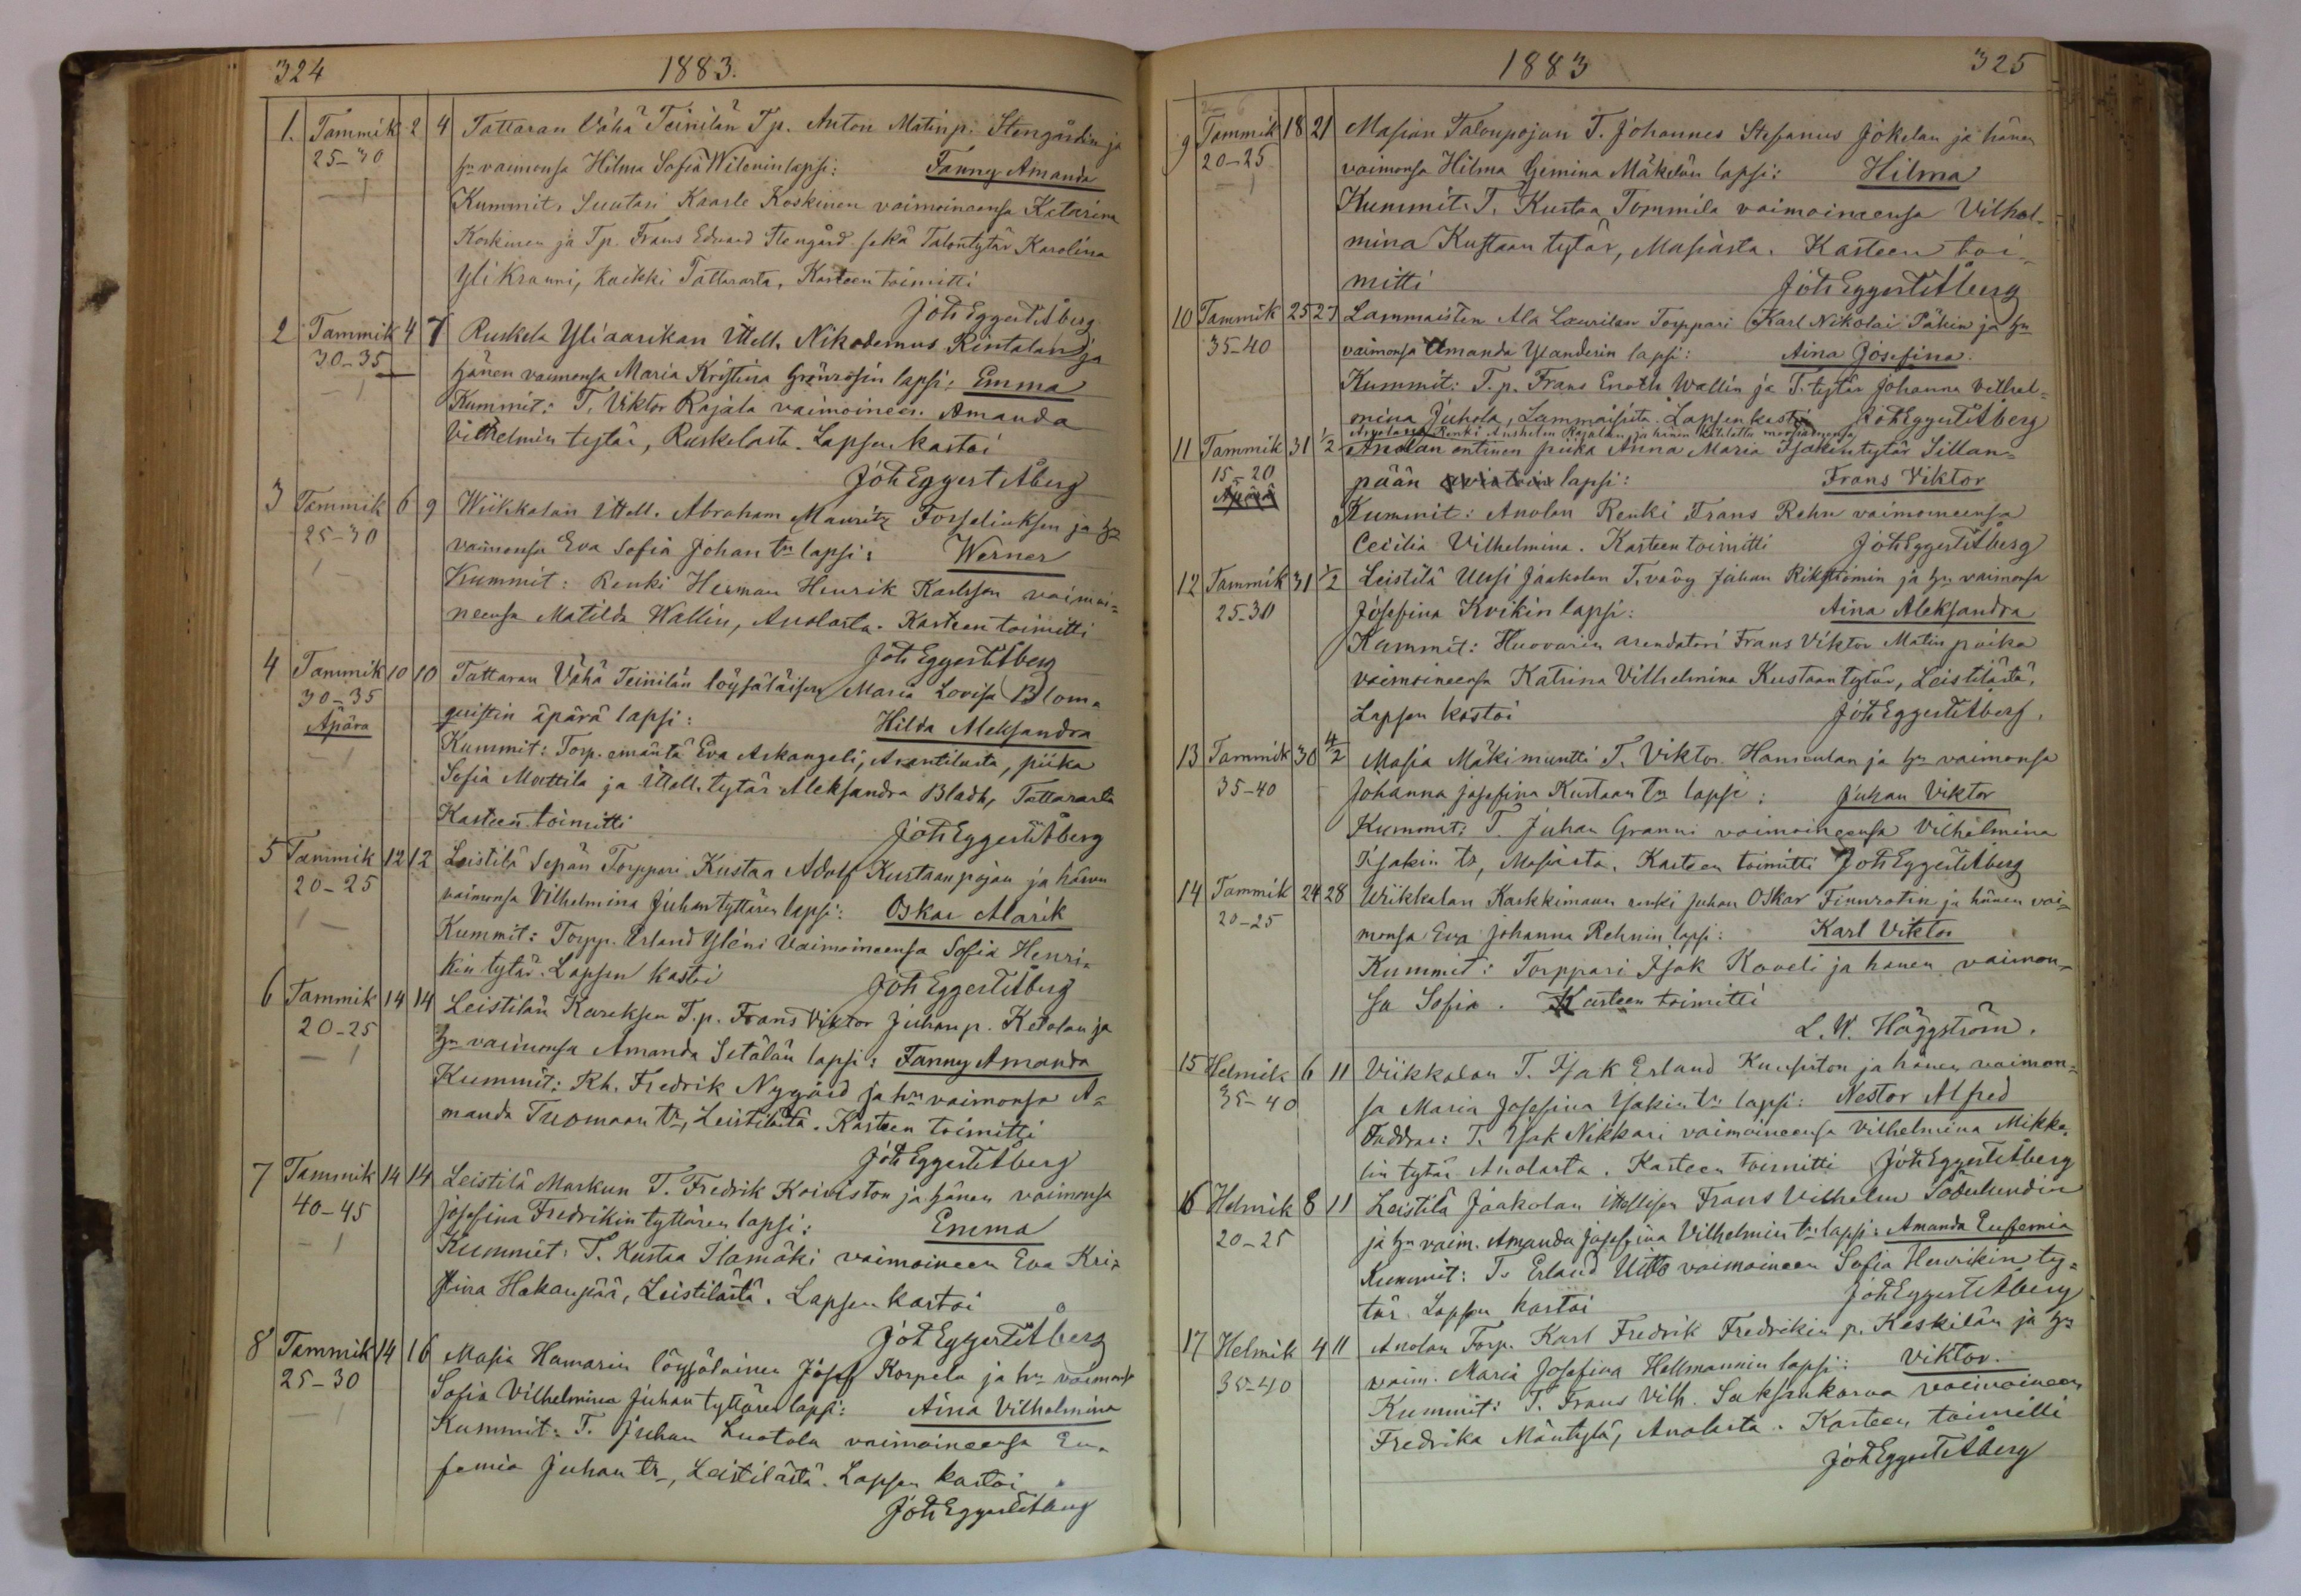 324 1883.
1. Tammik 2 4 Tattaran Vähä Teinilän Tp. Anton Matinp. Stengårdin ja
25-30 hn vaimonsa Hilma Sofia Wilenin lapsi: Fanny Amanda
Kummit: Suutari Kaarle Koskinen vaimoineensa Katarina
Koskinen ja Tp. Frans Edvard Stengård sekä Talontytär Karolina
Yli Kranni, kaikki Tattarasta, Kasteen toimitti
Joh Eggert Åberg
2 Tammik 4 7 Ruskela Yliaarikan Itsell. Nikodemus Rintalan ja
30-35 hänen vaimonsa Maria Kristina Grönrosin lapsi: Emma
Kummit: T. Viktor Rajala vaimoineen Amanda
Vilhelmin tytär, Ruskelasta. Lapsen kastoi
Joh Eggert Åberg
3 Tammik 6 9 Wiikkalan Itsell. Abraham Mauritz Forseliuksen ja hn
25-30 vaimonsa Eva Sofia Johan tn lapsi: Werner
Kummit: Renki Herman Henrik Karlsson vaimoi=
neensa Matilda Wallin, Anolasta. Kasteen toimitti
Joh Eggert Åberg
4 Tammik 10 10 Tattaran Vähä Teinilän löysäläisen Maria Lovisa Blom=
30-35 quistin äpärä lapsi: Hilda Aleksandra
Äpärä
Kummit: Torp. emäntä Eva Arkangeli, Arantilasta, piika
Sofia Mattila ja Itsell. tytär Aleksandra Bladh, Tattarasta
Kasteen toimitti Joh Eggert Åberg
5 Tammik 12 12 Leistilä Sepän Torppari Kustaa Adolf Kustaanpojan ja hänen
20-25 vaimonsa Vilhelmina Juhantyttären lapsi: Oskar Alarik
Kummit: Torpp. Erland Yleni Vaimoineensa Sofia Henri=
kin tytär. Lapsen kastoi Joh Eggert Åberg
6 Tammik 14 14 Leistilän Kareksen T.p. Frans Viktor Juhan p. Ketolan ja
20-25 hn vaimonsa Amanda Setälän lapsi: Fanny Amanda
Kummit: Rh. Fredrik Nygård ja hn vaimonsa A=
manda Tuomaan tr, Leistilästä. Kasteen toimitti
Joh Eggert Åberg
7 Tammik 14 14 Leistilä Markun T. Fredrik Koiviston ja hänen vaimonsa
40-45 Josefina Fredrikin tyttären lapsi: Emma
Kummit: T. Kustaa Ilamäki vaimoineen Eva Kri=
stina Hakanpää, Leistilästä. Lapsen kastoi
Joh Eggert Åberg
8 Tammik 14 16 Masia Hamarin löysäläinen Josef Korpela ja hn vaimonsa
25-30 Sofia Vilhelmina Juhan tyttären lapsi: Aina Vilhelmina
Kummit: T. Juhan Luotola vaimoineensa Eu=
femia Juhan tr, Leistilästä. Lapsen kastoi
Joh Eggert Åberg
1883 325
9 Tammik 18 21 Masian Talonpojan T. Johannes Stefanus Jokelan ja hänen
20-25 vaimonsa Hilma Gemina Mäkelän lapsi: Hilma
Kummit: T. Kustaa Tommila vaimoineensa Vilhel=
mina Kustaan tytär, Masiasta. Kasteen toi=
mitti Joh Eggert Åberg
10 Tammik 25 27 Lammaisten Ala Laurilan Torppari Karl Nikolai Pähin ja hn
35-40 vaimonsa Amanda Ylanderin lapsi: Aina Josefina.
Kummit: T.p. Frans Enoth Wallin ja T. tytär Johanna Vilhel=
mina Juhola, Lammaisista. Lapsen kastoi Joh Eggert Åberg
Renki Anshelm Rajalan ja hänen
11 Tammik 31 1/2 Anolan entinen piika Anna Maria Isakintytär Sillan=
15-20 pään lapsi: Frans Viktor
Äpärä
Kummit: Anolan Renki Frans Rehn vaimoineensa
Cecilia Vilhelmina. Kasteen toimitti Joh Eggert Åberg
12 Tammik 31 1/2 Leistilä Uusi Jaakolan T. vävy Juhan Rikströmin ja hn vaimonsa
25-30 Josefina Kvikin lapsi: Aina Aleksandra
Kummit: Huovarin arendatori Frans Viktor Matin poika
vaimoineensa Katrina Vilhelmina Kustaan tytär, Leistilästä.
Lapsen kastoi Joh Eggert Åberg.
13 Tammik 30 4/2 Masia Mäkimuntti T. Viktor Hannulan ja hn vaimonsa
35-40 Johanna Josefina Kustaan tn lapsi: Juhan Viktor
Kummit: T. Juhan Granni vaimoineensa Vilhelmina
Isakin tr, Masiasta. Kasteen toimitti Joh Eggert Åberg
14 Tammik 24 28 Wiikkalan Karkkimaan renki Juhan Oskar Finnrotin ja hänen vai=
20-25 monsa Eva Johanna Rehnin lapsi: Karl Viktor
Kummit: Torppari Isak Koveli ja hanen vaimon=
sa Sofia. Kasteen toimitti
L. W. Häggström.
15 Helmik 6 11 Viikkalan T. Isak Erland Kuusiston ja hänen vaimon=
35-40 sa Maria Josefina Isakin tn lapsi: Nestor Alfred
Faddrar: T. Isak Nikkari vaimoineensa Vilhelmina Mikke=
lin tytär Anolasta. Kasteen toimitti Joh Eggert Åberg
16 Helmik 8 11 Leistilä Jaakolan itsellisen Frans Vilhelm Söderlundin
20-25 ja hn vaim. Amanda Josefina Vilhelmin tn lapsi: Amanda Eufemia
Kummit: T. Erland Uitto vaimoineen Sofia Henrikin ty=
tär. Lapsen kastoi Joh Eggert Åberg
17 Helmik 4 11 Anolan Torp. Karl Fredrik Fredrikin p. Keskilän ja hn
35-40 vaim. Maria Josefina Hellmannin lapsi: Viktor.
Kummit: T. Frans Vilh. Saksankorva vaimoineen
Fredrika Mäntylä, Anolasta. Kasteen toimitti
Joh Eggert Åberg